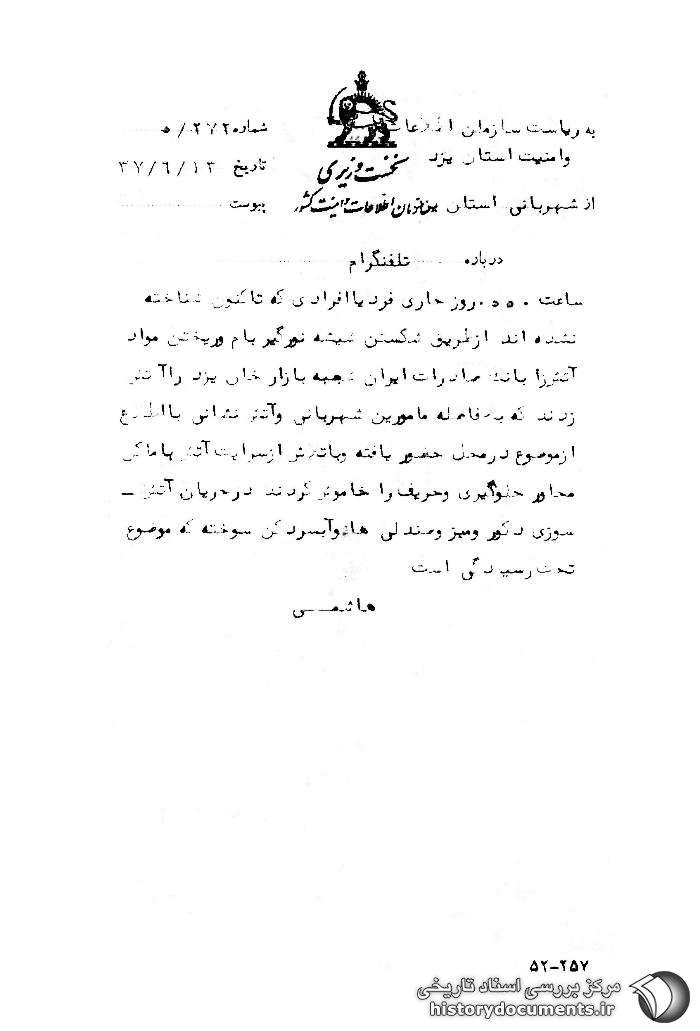 به ریاست سازمان اطلاعات
وامنیت استان یزد
از شهربانی استان
نخست وزیری
سازمان اطلاعات و امنیت کشور
شماره ۵/۲۷۲
تاریخ ۳۷/۶/۱۳
پیوست
درباره تلفنگرام
ساعت ۰۵۵۰ روز جاری فرد یا افرادی که تاکنون شناخته
نشده اند از طریق شکستن شیشه نورگیر بام وریختن مواد
آتشزا بانک صادرات ایران شعبه بازار خان یزد را آتش
زدند که بلافاصله مامورین شهربانی وآتش نشانی با اطلاع
از موضوع در محل حضور یافته وباتلاش از سرایت آتش باماکن
مجاور جلوگیری وحریق را خاموش کردند در جریان آتش ـ
سوزی دکور ومیز وصندلی هاوآبسردکن سوخته که موضوع
تحت رسیدگی است
هاشمی
۵۲-۲۵۷
مرکز بررسی اسناد تاریخی
historydocuments.ir